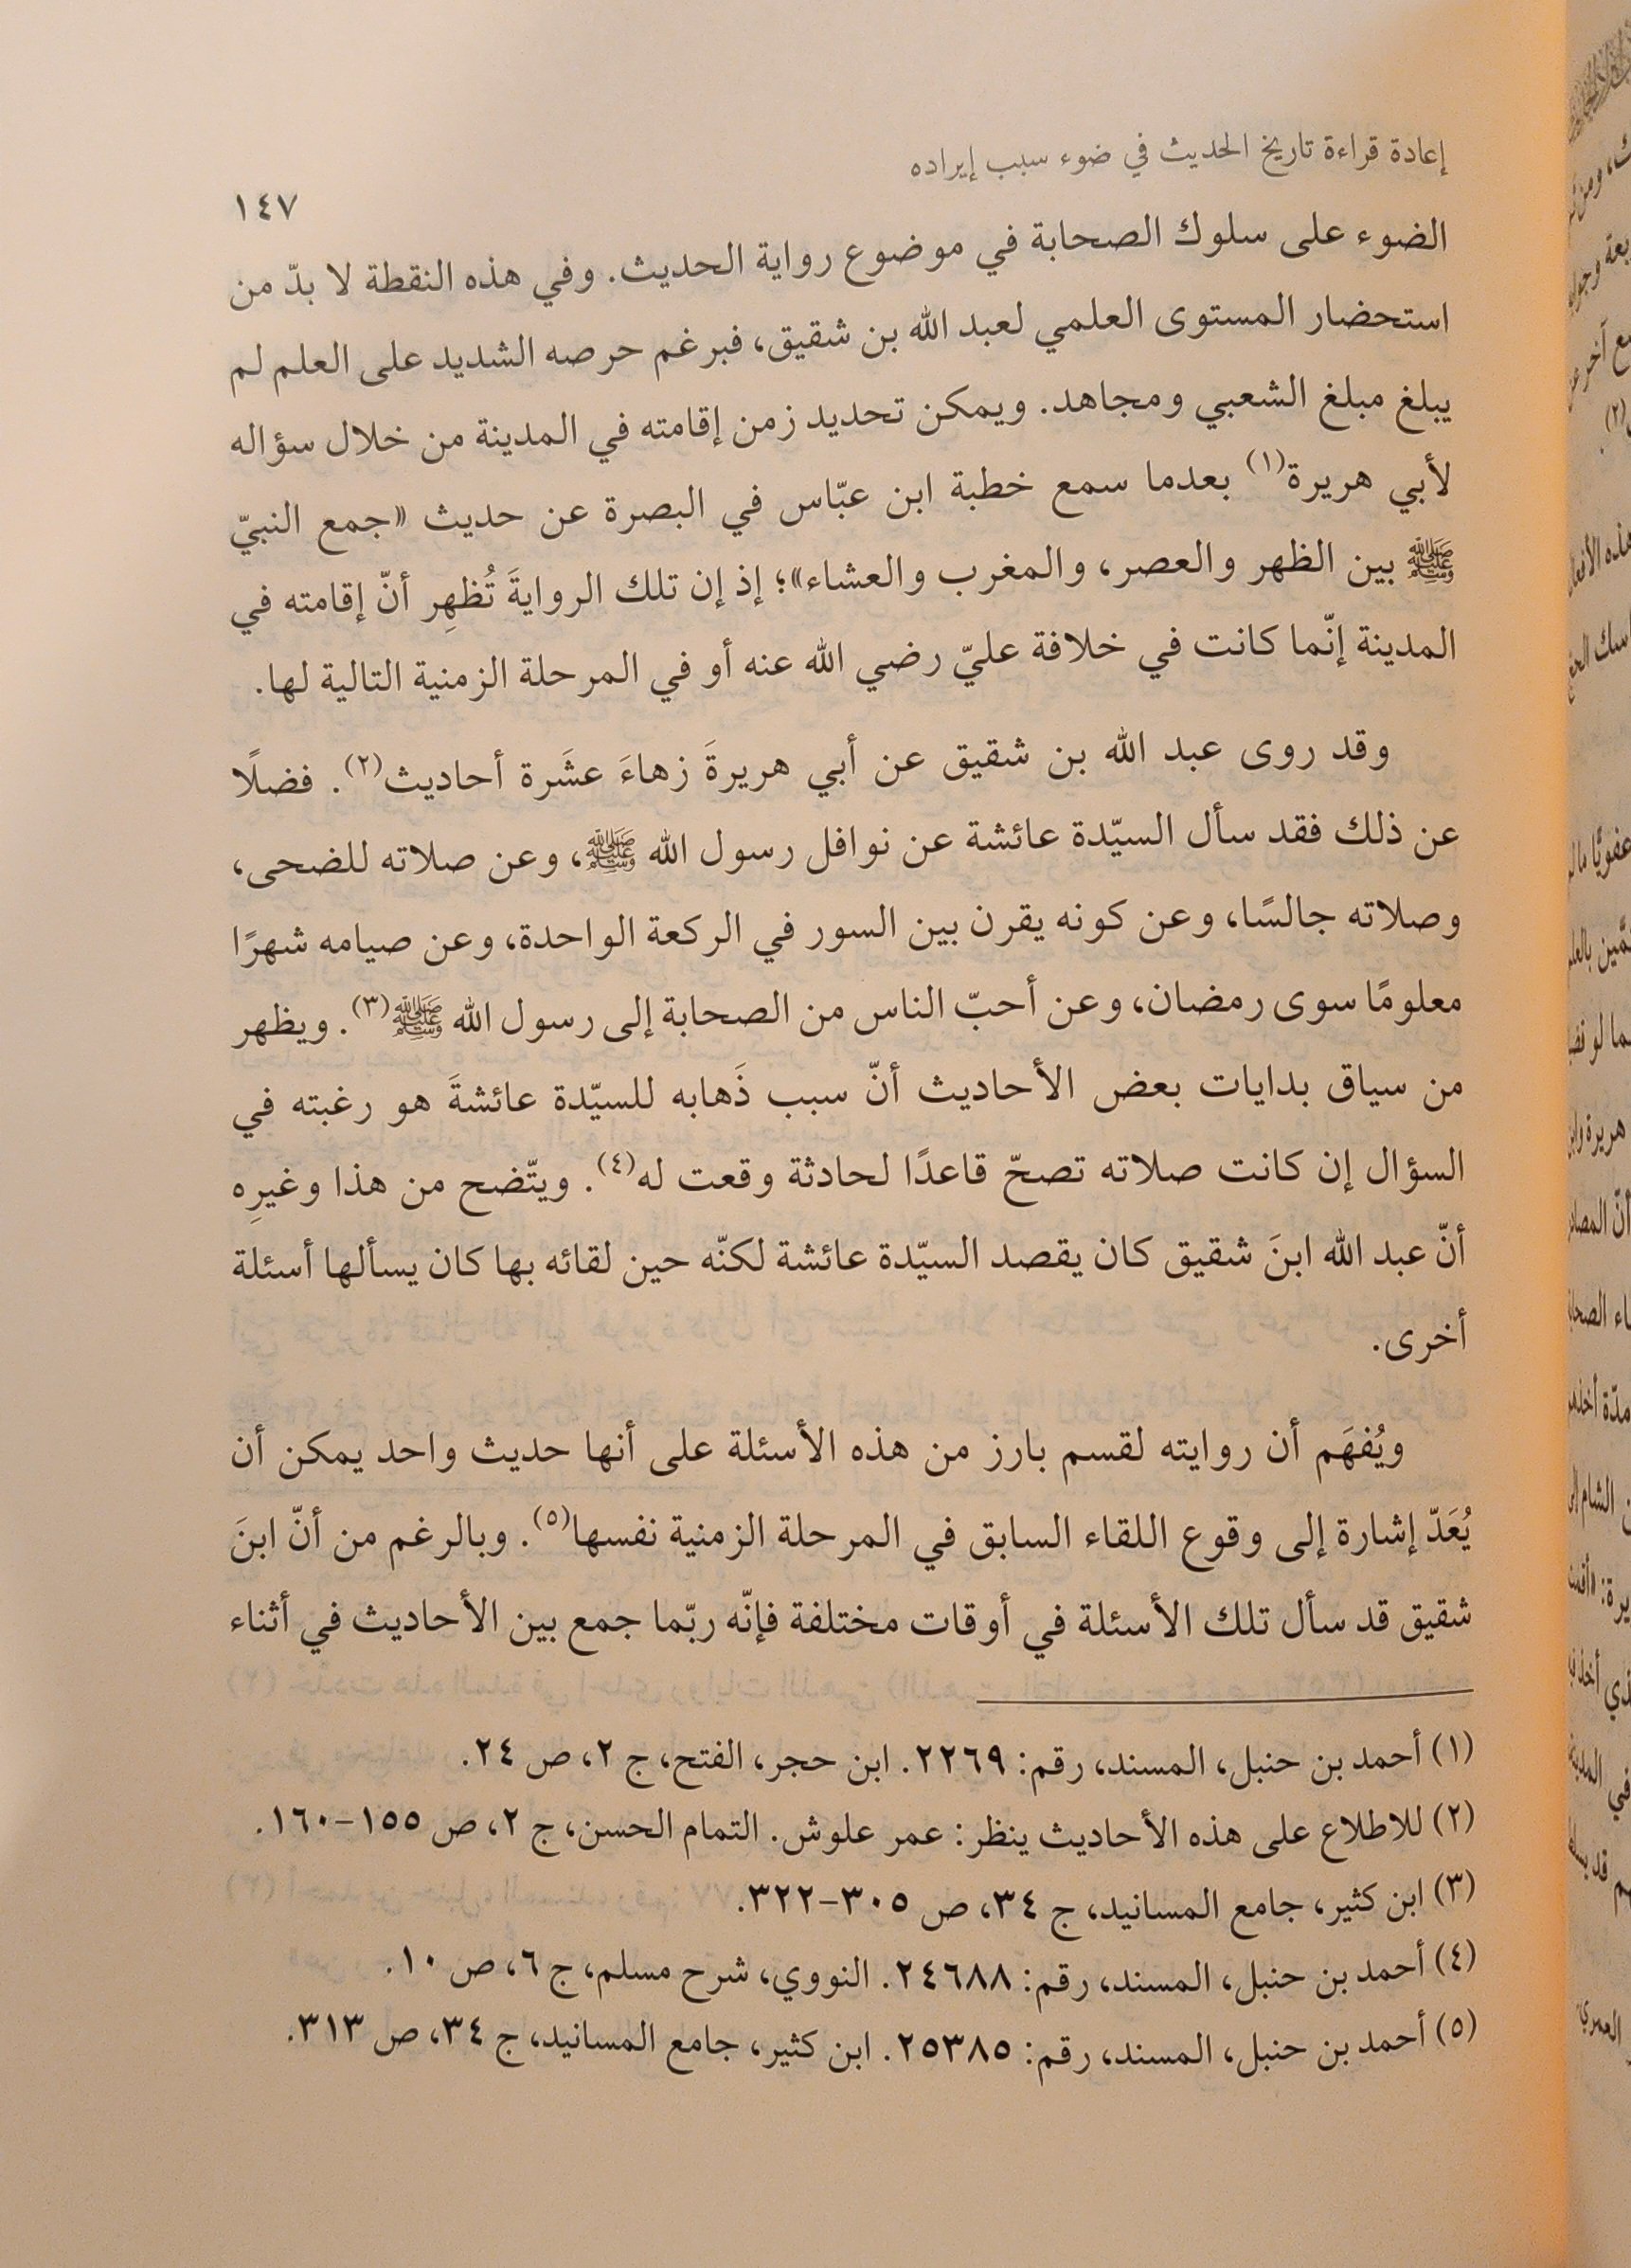 إعادة قراءة تاريخ الحديث في ضوء سبب إيراده
١٤٧
الضوء على سلوك الصحابة في موضوع رواية الحديث. وفي هذه النقطة لا بدّ من
استحضار المستوى العلمي لعبد الله بن شقيق، فبرغم حرصه الشديد على العلم لم
يبلغ مبلغ الشعبي ومجاهد. ويمكن تحديد زمن إقامته في المدينة من خلال سؤاله
لأبي هريرة(١) بعدما سمع خطبة ابن عبّاس في البصرة عن حديث «جمع النبيّ
ﷺ بين الظهر والعصر، والمغرب والعشاء»؛ إذ إن تلك الروايةَ تُظهِر أنّ إقامته في
المدينة إنّما كانت في خلافة عليّ رضي الله عنه أو في المرحلة الزمنية التالية لها.
وقد روى عبد الله بن شقيق عن أبي هريرةَ زهاءَ عشَرة أحاديث(٢). فضلًا
عن ذلك فقد سأل السيّدة عائشة عن نوافل رسول الله ﷺ، وعن صلاته للضحى،
وصلاته جالسًا، وعن كونه يقرن بين السور في الركعة الواحدة، وعن صيامه شهرًا
معلومًا سوى رمضان، وعن أحبّ الناس من الصحابة إلى رسول الله ﷺ(٣). ويظهر
من سياق بدايات بعض الأحاديث أنّ سبب ذَهابه للسيّدة عائشةَ هو رغبته في
السؤال إن كانت صلاته تصحّ قاعدًا لحادثة وقعت له(٤). ويتّضح من هذا وغيرِه
أنّ عبد الله ابنَ شقيق كان يقصد السيّدة عائشة لكنّه حين لقائه بها كان يسألها أسئلة
أخرى.
ويُفهَم أن روايته لقسم بارز من هذه الأسئلة على أنها حديث واحد يمكن أن
يُعَدّ إشارة إلى وقوع اللقاء السابق في المرحلة الزمنية نفسها(٥). وبالرغم من أنّ ابنَ
شقيق قد سأل تلك الأسئلة في أوقات مختلفة فإنّه ربّما جمع بين الأحاديث في أثناء
(١) أحمد بن حنبل، المسند، رقم: ٢٢٦٩. ابن حجر، الفتح، ج ٢، ص ٢٤.
(٢) للاطلاع على هذه الأحاديث ينظر: عمر علوش. التمام الحسن، ج ٢، ص ١٥٥-١٦٠.
(٣) ابن كثير، جامع المسانيد، ج ٣٤، ص ٣٠٥-٣٢٢.
(٤) أحمد بن حنبل، المسند، رقم: ٢٤٦٨٨. النووي، شرح مسلم، ج ٦، ص ١٠.
(٥) أحمد بن حنبل، المسند، رقم: ٢٥٣٨٥. ابن كثير، جامع المسانيد، ج ٣٤، ص ٣١٣.